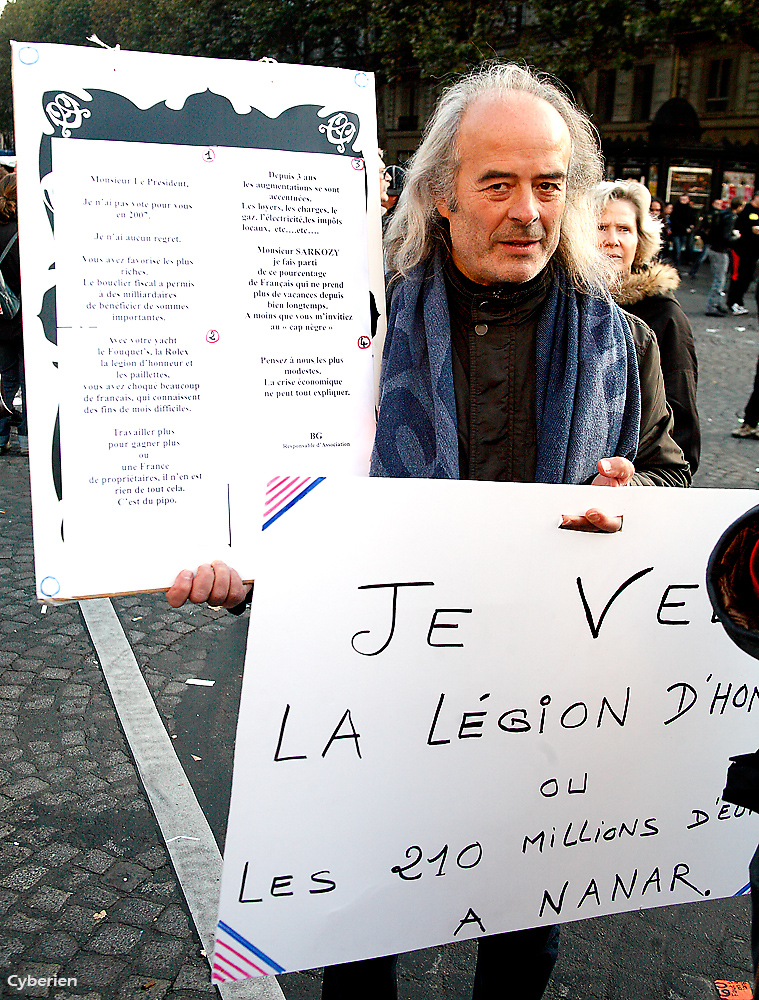 1
Monsieur Le President,
Je n'ai pas voté pour vous
en 2007.
Je n'ai aucun regret.
Vous avez favorisé les plus
riches.
Le bouclier fiscal a permis
à des milliardaires
de bénéficier de sommes
importantes.
2
Avec votre yacht
le Fouquet's, la Rolex
la legion d'honneur et
les paillettes,
vous avez choqué beaucoup
de français, qui connaissent
des fins de mois difficiles.
Travailler plus
pour gagner plus
ou
une France
de propriétaires, il n'en est
rien de tout cela.
C'est du pipo.
3
Depuis 3 ans
les augmentations se sont
accentuées.
Les loyers, les charges, le
gaz, l'électricité,les impôts
locaux, etc....etc....
Monsieur SARKOZY
je fais parti
de ce pourcentage
de Français qui ne prend
plus de vacances depuis
bien longtemps.
A moins que vous m'invitiez
au « cap nègre »
4
Pensez à nous les plus
modestes.
La crise économique
ne peut tout expliquer.
BG
Responsable d'Association
JE
LA LÉGION
OU
LES 210 MILLIONS
A NANAR.
Cyberien